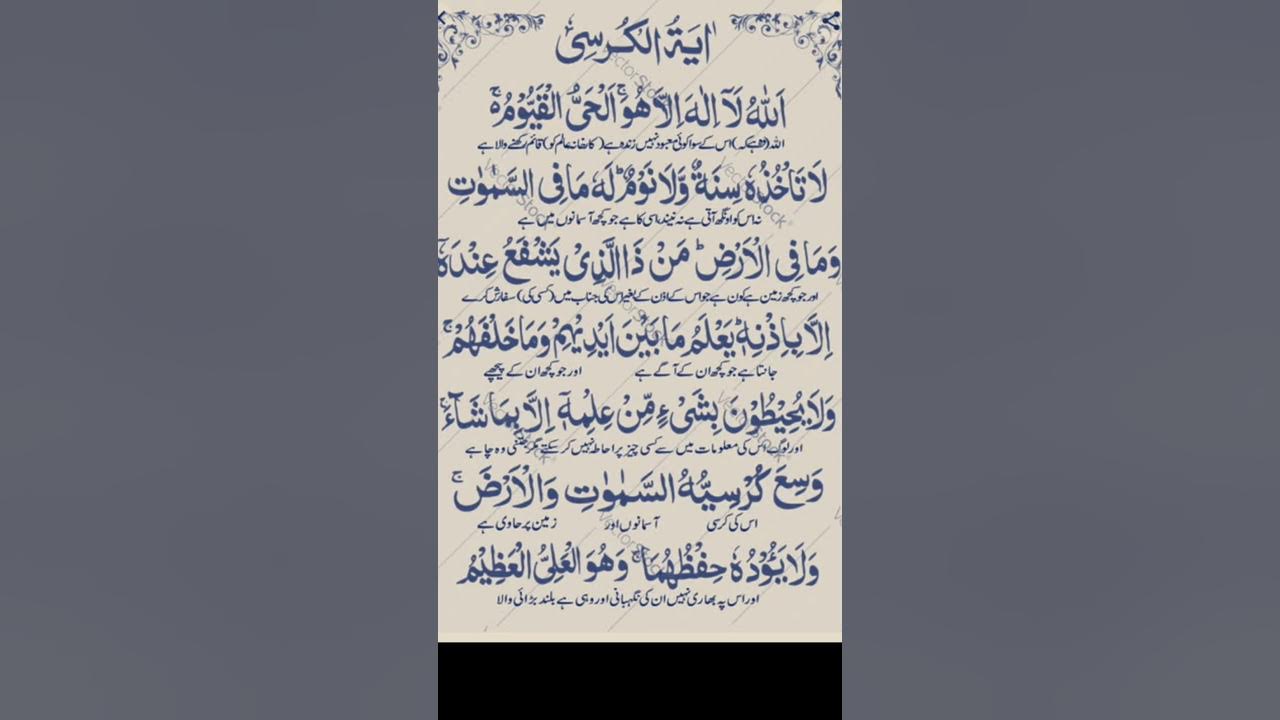 اٰیَةُ الْکُرْسِیْ
اَللّٰهُ لَآ اِلٰهَ اِلَّا هُوَ ۚ اَلْحَیُّ الْقَیُّوْمُ ۬ۚ
اللہ (وہ ہے کہ) اس کے سوا کوئی معبود نہیں زندہ ہے (کارخانہ عالم کو) قائم رکھنے والا ہے
لَا تَاْخُذُهٗ سِنَةٌ وَّلَا نَوْمٌ ؕ لَهٗ مَا فِی السَّمٰوٰتِ
نہ اس کو اونگھ آتی ہے نہ نیند، اسی کا ہے جو کچھ آسمانوں میں ہے
وَمَا فِی الْاَرْضِ ؕ مَنْ ذَا الَّذِیْ یَشْفَعُ عِنْدَهٗۤ
اور جو کچھ زمین ہے کون ہے جو اس کے اذن کے بغیر اس کی جناب میں (کسی کی) سفارش کرے
اِلَّا بِاِذْنِهٖ ؕ یَعْلَمُ مَا بَیْنَ اَیْدِیْهِمْ وَمَا خَلْفَهُمْ ۚ
جانتا ہے جو کچھ ان کے آگے ہے اور جو کچھ ان کے پیچھے
وَلَا یُحِیْطُوْنَ بِشَیْءٍ مِّنْ عِلْمِهٖۤ اِلَّا بِمَا شَآءَ ۚ
اور لوگ اس کی معلومات میں سے کسی چیز پر احاطہ نہیں کر سکتے مگر جتنی وہ چاہے
وَسِعَ کُرْسِیُّهُ السَّمٰوٰتِ وَالْاَرْضَ ۚ
اس کی کرسی آسمانوں اور زمین پر حاوی ہے
وَلَا یَـُٔوْدُهٗ حِفْظُهُمَا ۚ وَهُوَ الْعَلِیُّ الْعَظِیْمُ
اور اس پہ بھاری نہیں ان کی نگہبانی اور وہی ہے بلند بڑائی والا
VectorStock